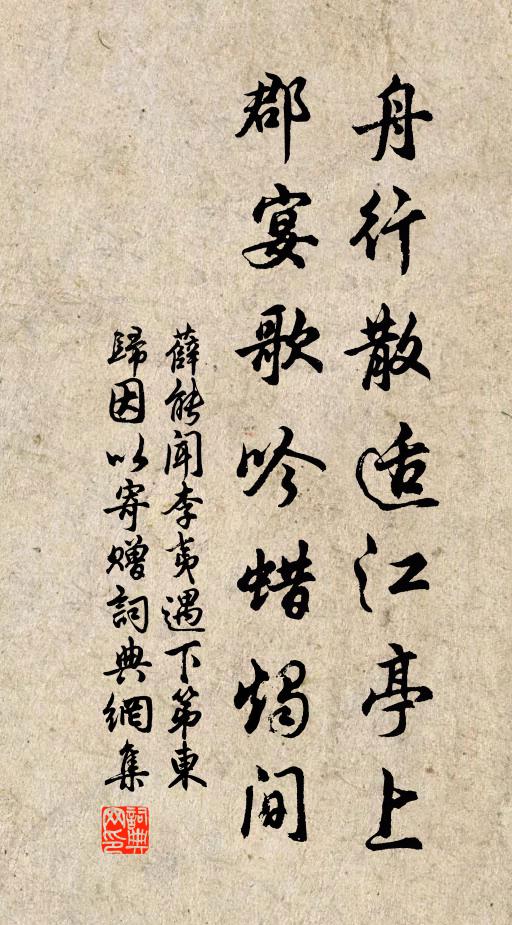 舟行散适江亭上
郡宴歌吟蜡烛间
薛能闻李夷遇下第東
歸因以寄赠詞典網集
詞典
网印